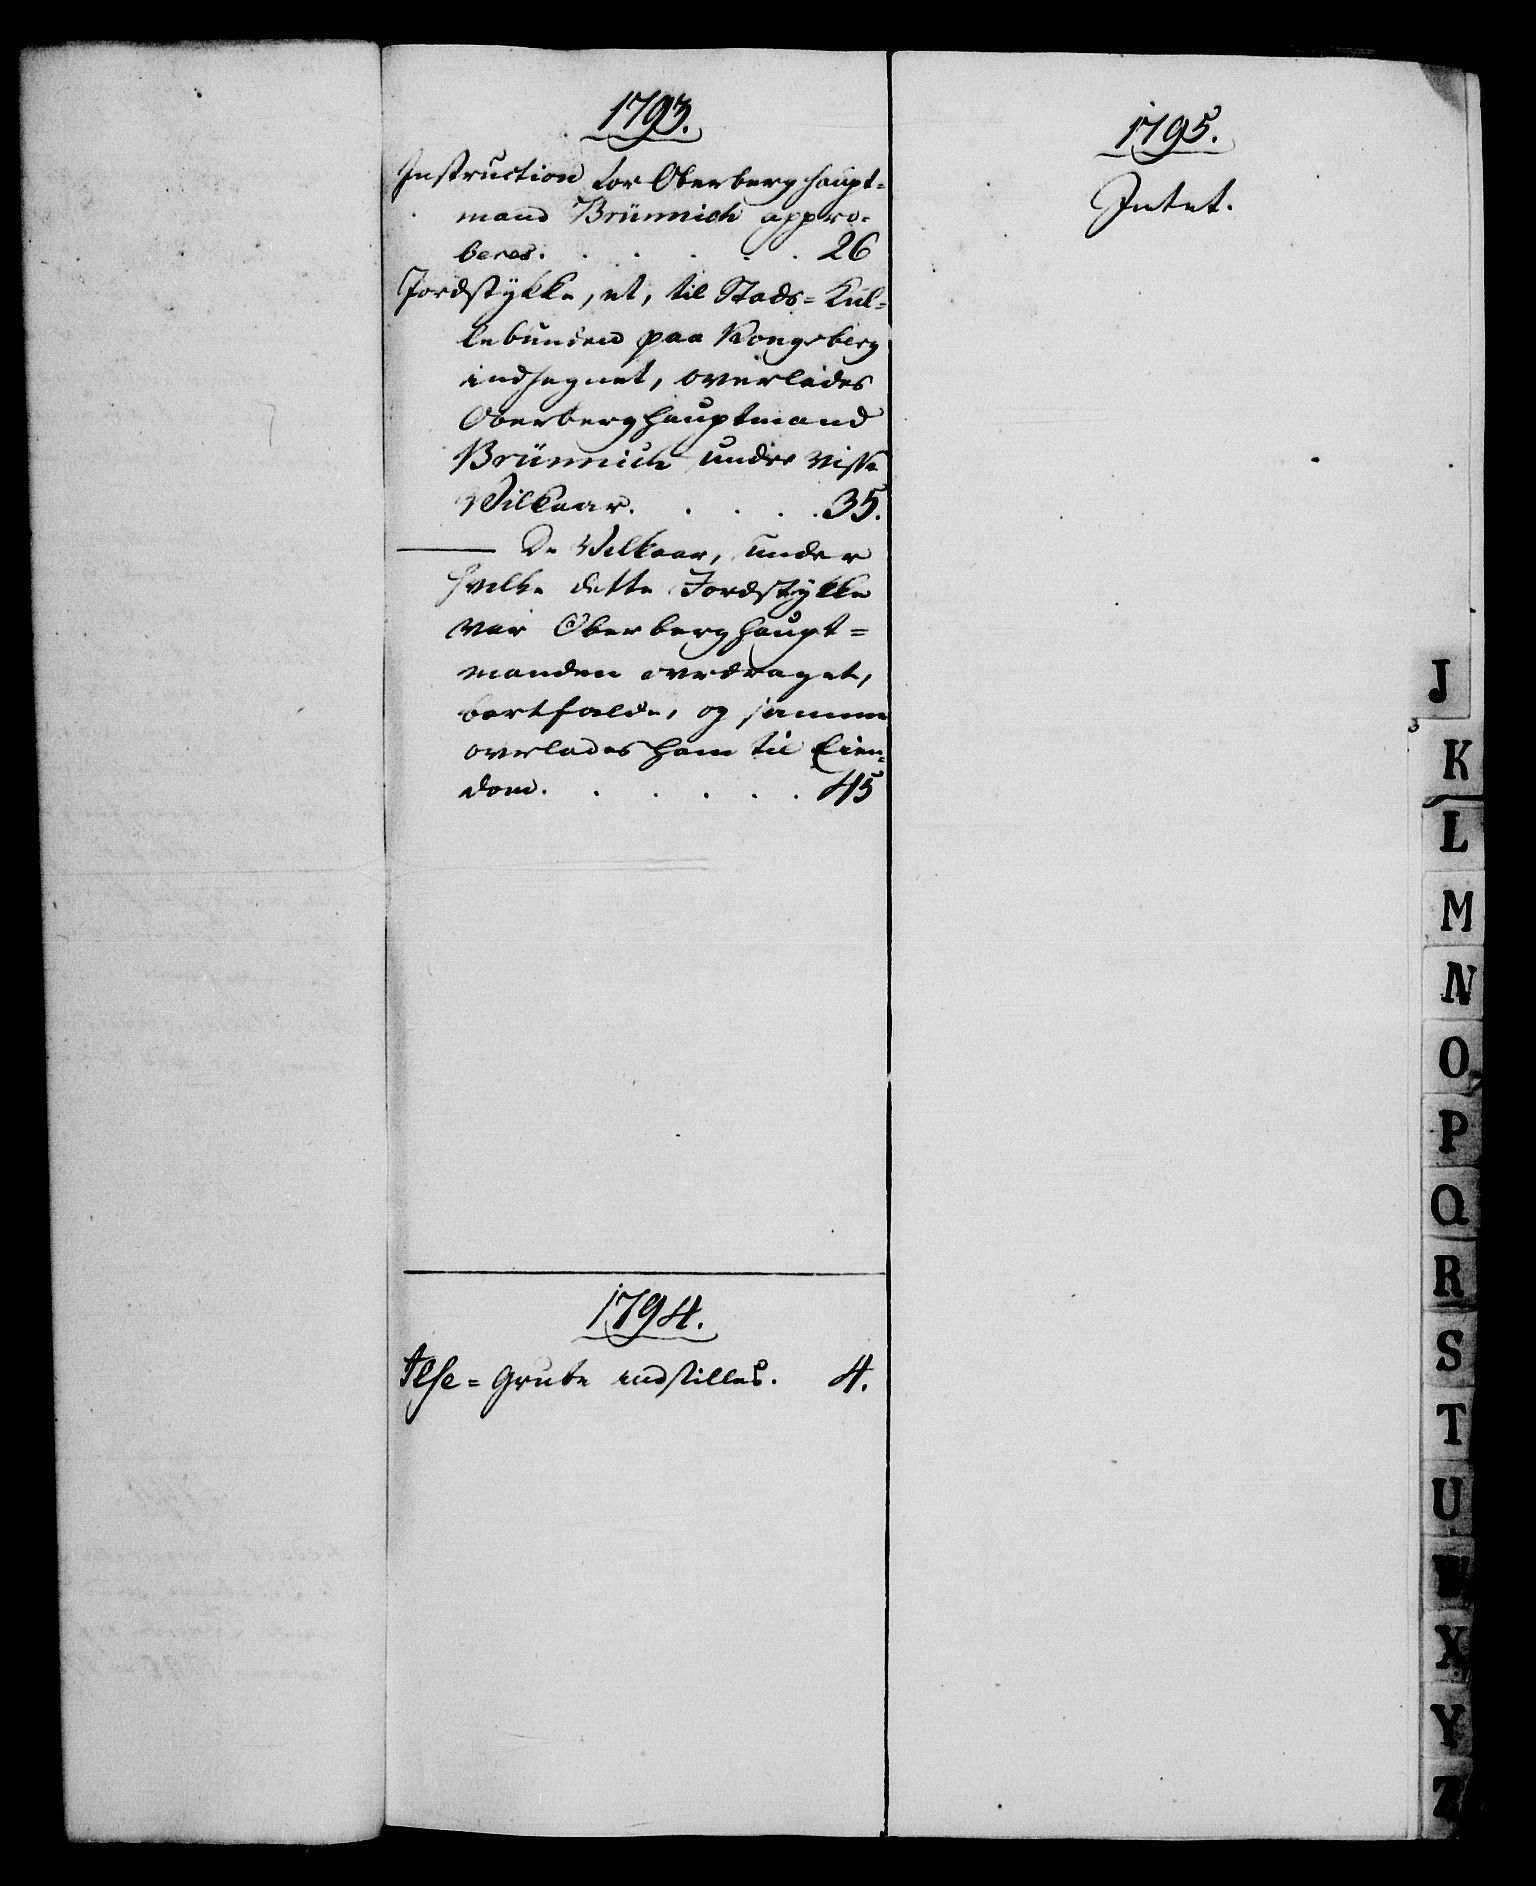 1793.
Instruction for Oberberghaupt=
mand Brünnich appro-
beres. . . . . . 26
Jordstykke, et, til Stads=Kul-
lebunden paa Kongsberg
indhegnet, overlades
Oberberghauptmand
Brünnich under visse
Vilkaar. . . . . 35.
—— De Vilkaar, under
hvilke dette Jordstykke
var Oberberghaupt=
manden overdraget,
bortfalde, og samme
overlades ham til Eien-
dom. . . . . . 45
1794.
Ilse=Grube indstilles. 4.
1795.
Intet.
J
K
L
M
N
O
P
Q
R
S
T
U
W
X
Y
Z